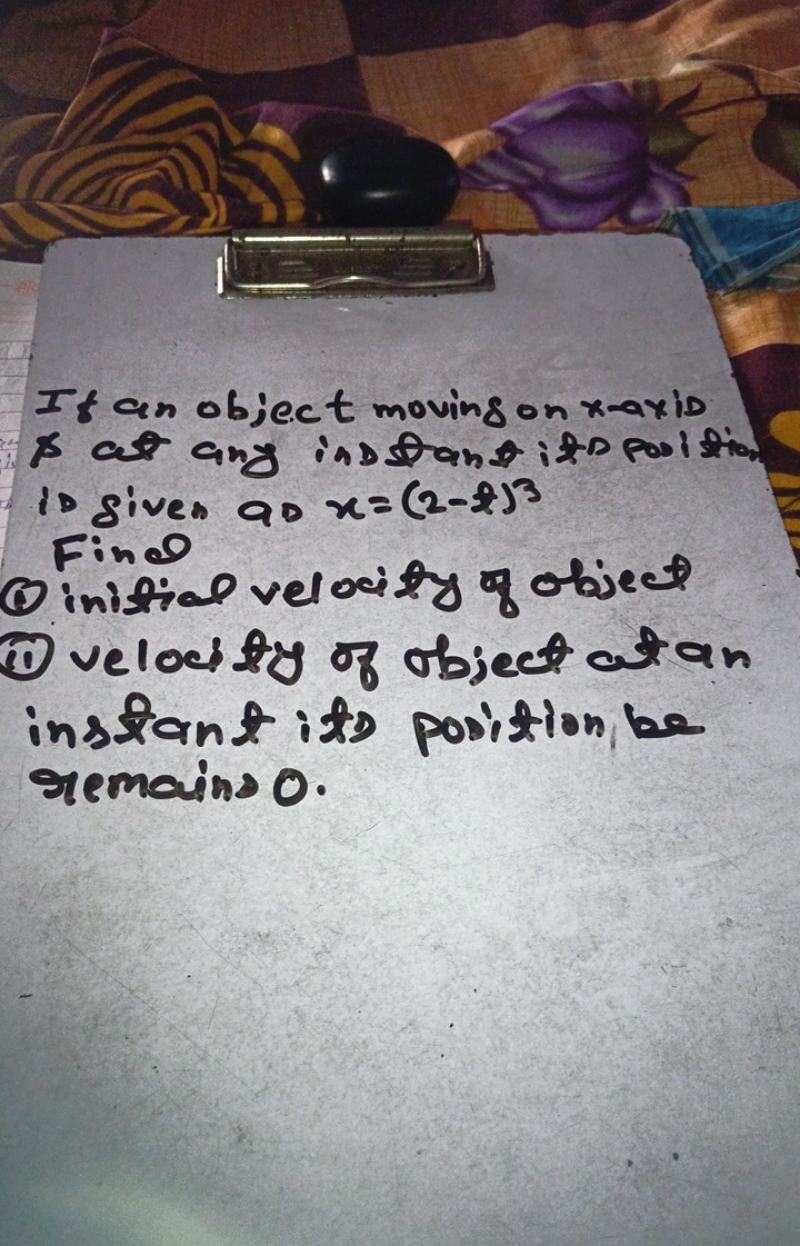 If an object moving on x-axis
& at any instant its position
is given as x=(2-t)³
Find
(i) initial velocity of object
(ii) velocity of object at an
instant its position be
remains 0.